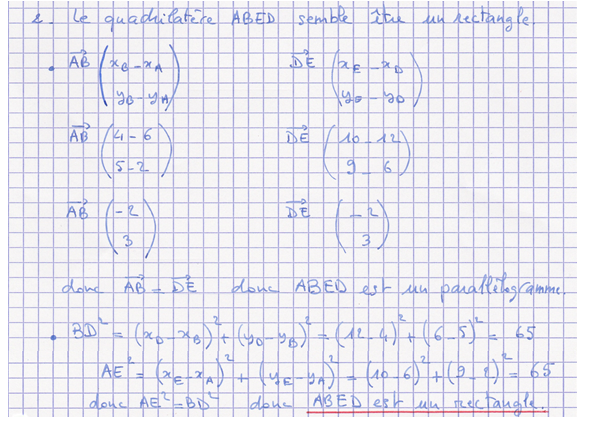 2. Le quadrilatère ABED semble être un rectangle.
• AB→ ( x_B - x_A ) DE→ ( x_E - x_D )
( y_B - y_A ) ( y_E - y_D )
AB→ ( 4 - 6 ) DE→ ( 10 - 12 )
( 5 - 2 ) ( 9 - 6 )
AB→ ( -2 ) DE→ ( -2 )
( 3 ) ( 3 )
donc AB→ = DE→ donc ABED est un parallélogramme.
• BD² = (x_D - x_B)² + (y_D - y_B)² = (12 - 4)² + (6 - 5)² = 65
AE² = (x_E - x_A)² + (y_E - y_A)² = (10 - 6)² + (9 - 2)² = 65
donc AE² = BD² donc ABED est un rectangle.